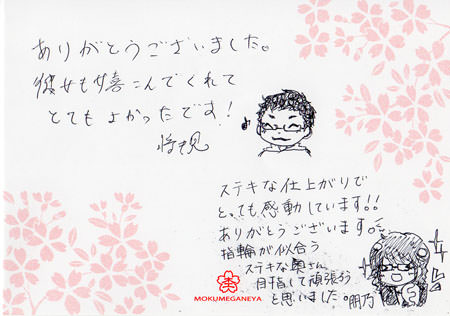 ありがとうございました。
彼女も喜こんでくれて
とてもよかったです！
ステキな仕上がりで
とっても感動しています!!
ありがとうございます。
指輪が似合う
ステキな奥さん
目指して頑張ろう
と思いました。朋乃
MOKUMEGANEYA